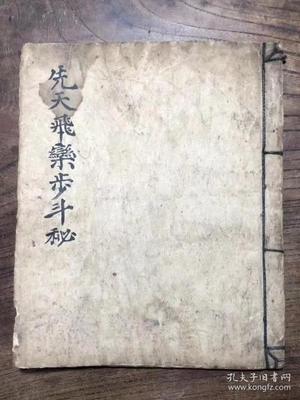 先天飛欒步斗秘
孔夫子旧书网
www.kongfz.com